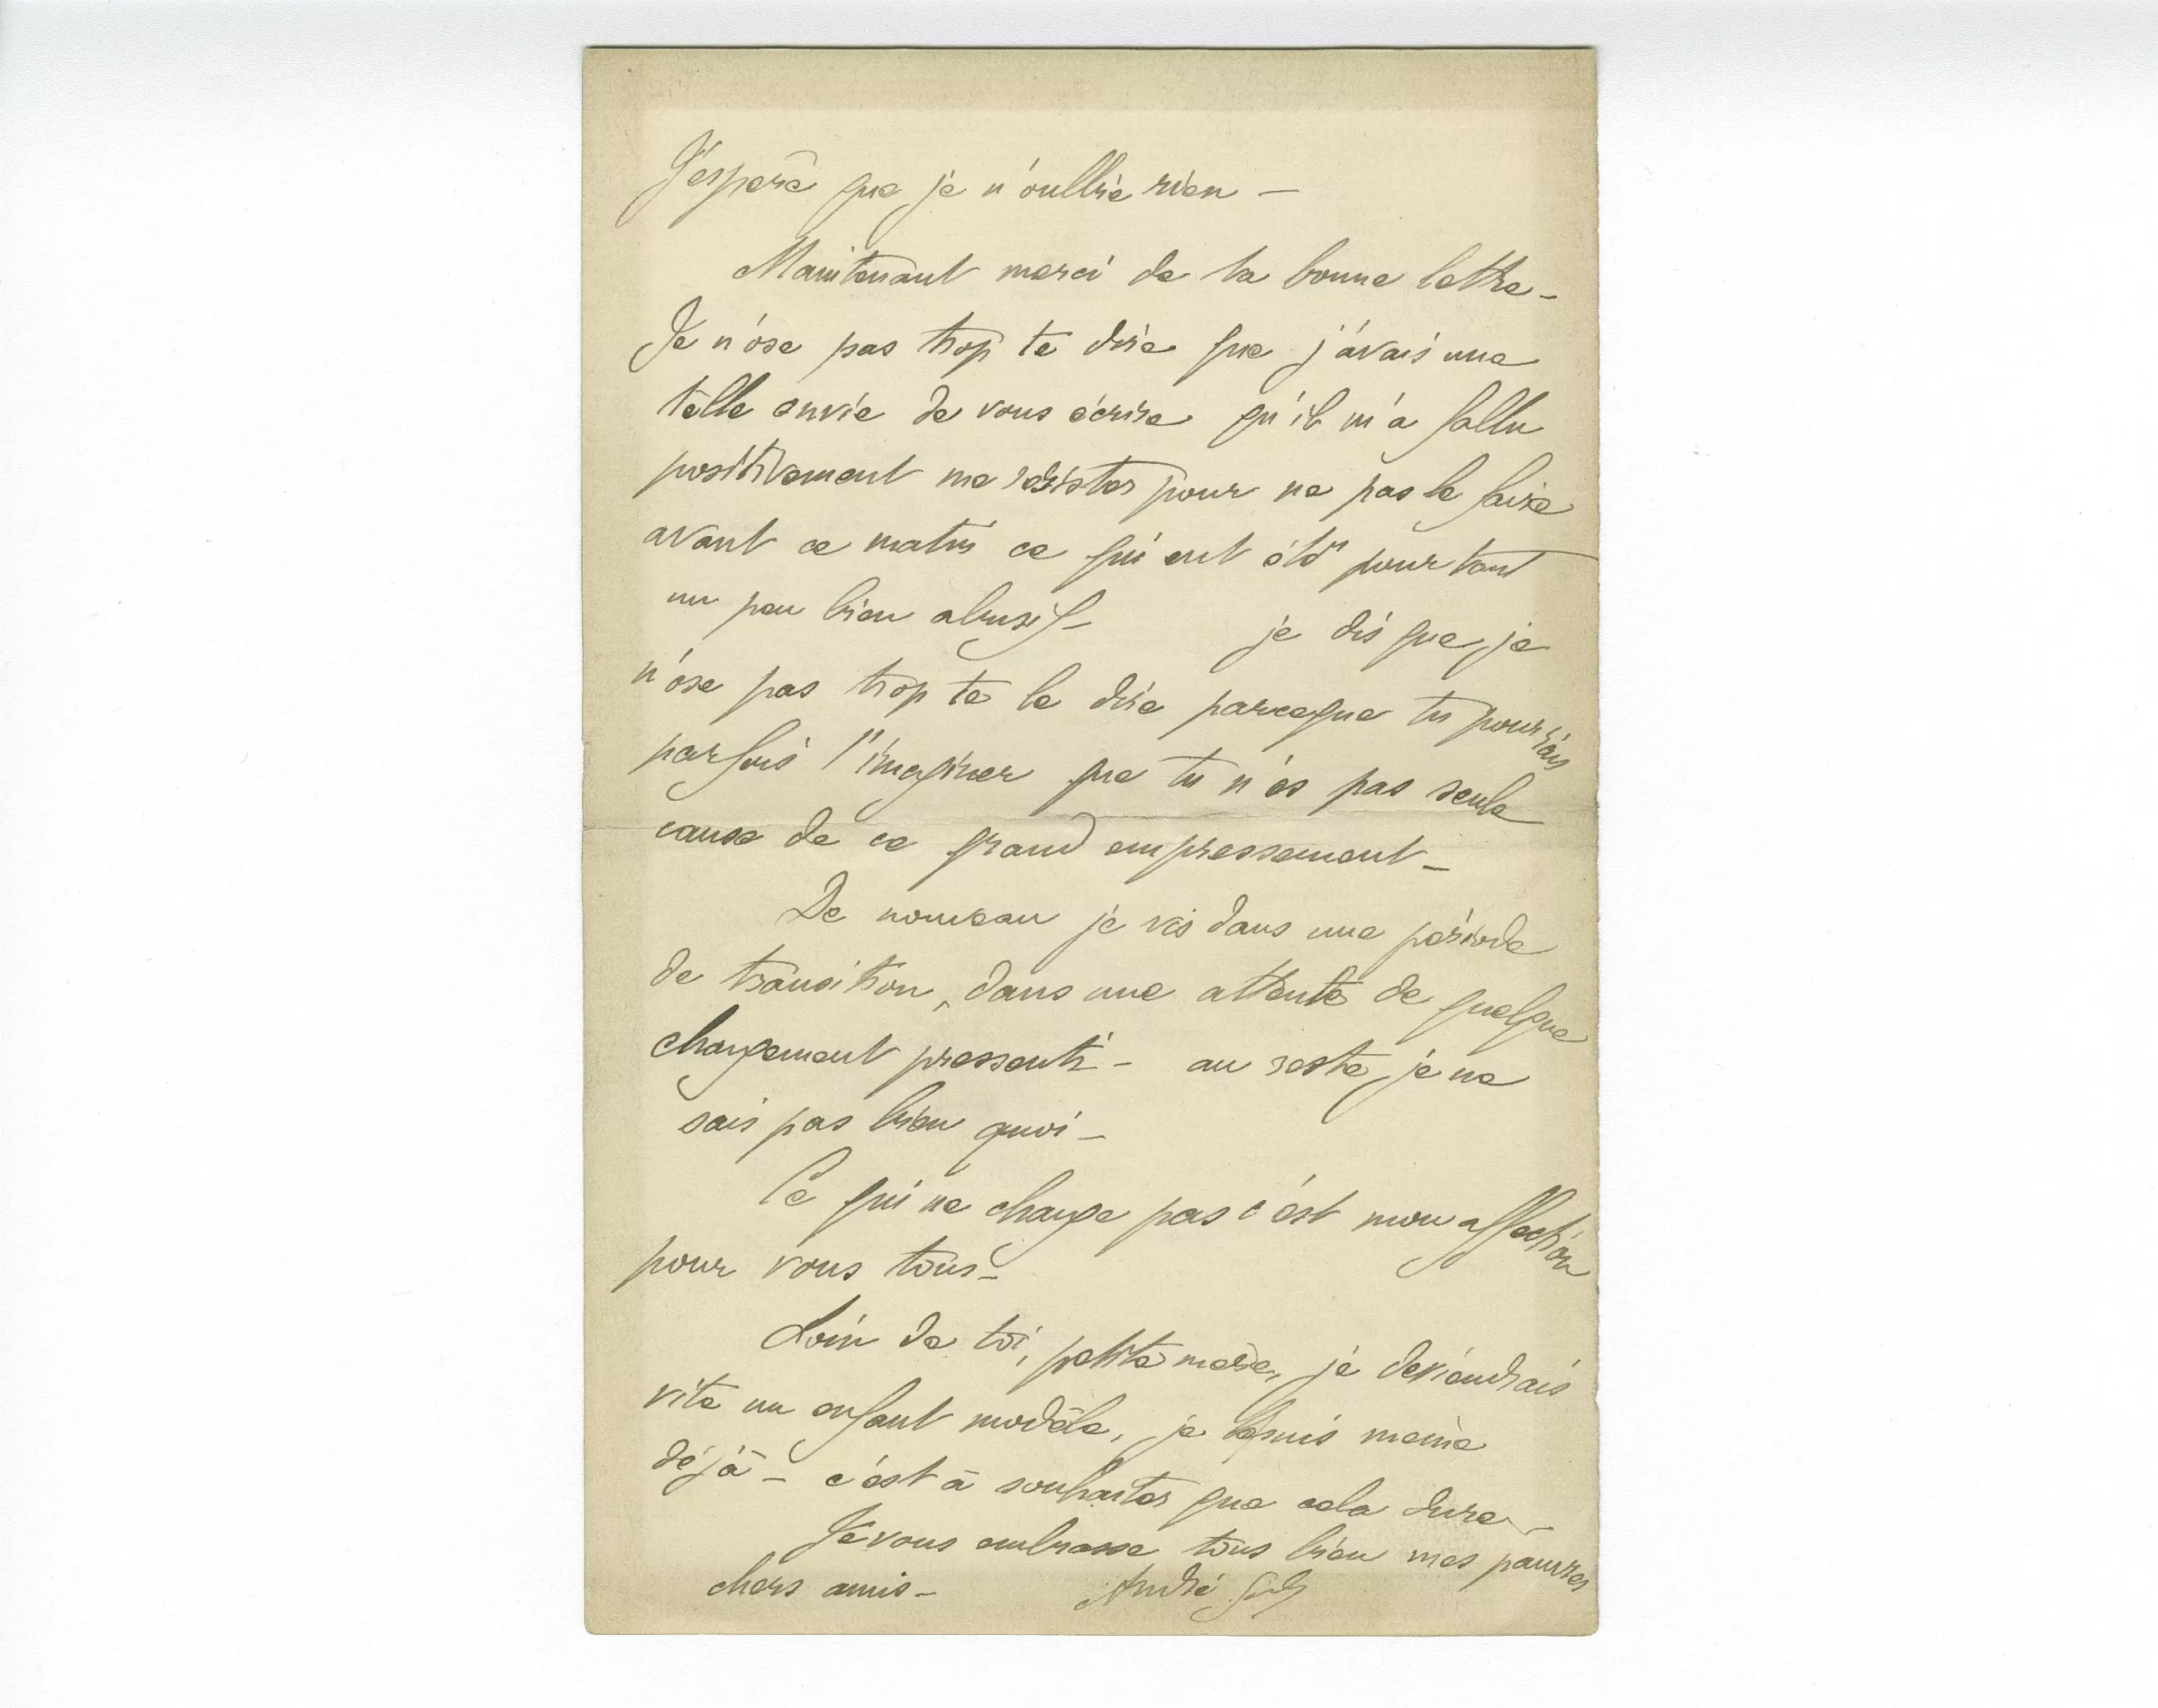 J'espère que je n'oublie rien –
Maintenant merci de ta bonne lettre –
Je n'ose pas trop te dire que j'avais une
telle envie de vous écrire qu'il m'a fallu
positivement me résister pour ne pas le faire
avant ce matin ce qui eut été pourtant
un peu bien abusif – je dis que je
n'ose pas trop te le dire parceque tu pourrais
parfois t'imaginer que tu n'es pas seule
cause de ce grand empressement –
De nouveau je vis dans une période
de transition, dans une attente de quelque
changement pressenti – au reste je ne
sais pas bien quoi –
Ce qui ne change pas c'est mon affection
pour vous tous –
Loin de toi, petite mère, je deviendrais
vite un enfant modèle, je le suis même
déjà – c'est à souhaiter que cela dure –
Je vous embrasse tous bien mes pauvres
chers amis – André Gide